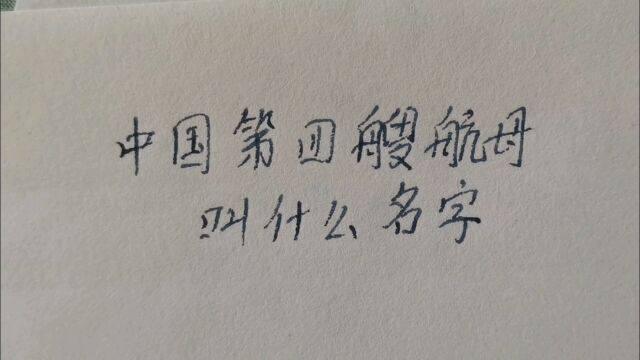 中国第四艘航母
叫什么名字